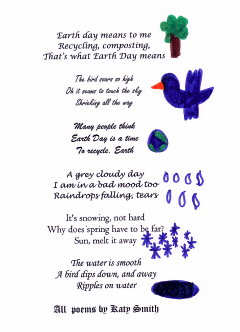 Earth day means to me
Recycling, composting,
That's what Earth Day means
The bird soars so high
Oh it seems to touch the sky
Shrinking all the way
Many people think
Earth Day is a time
To recycle. Earth
A grey cloudy day
I am in a bad mood too
Raindrops falling, tears
It's snowing, not hard
Why does spring have to be far?
Sun, melt it away
The water is smooth
A bird dips down, and away
Ripples on water
All poems by Katy Smith